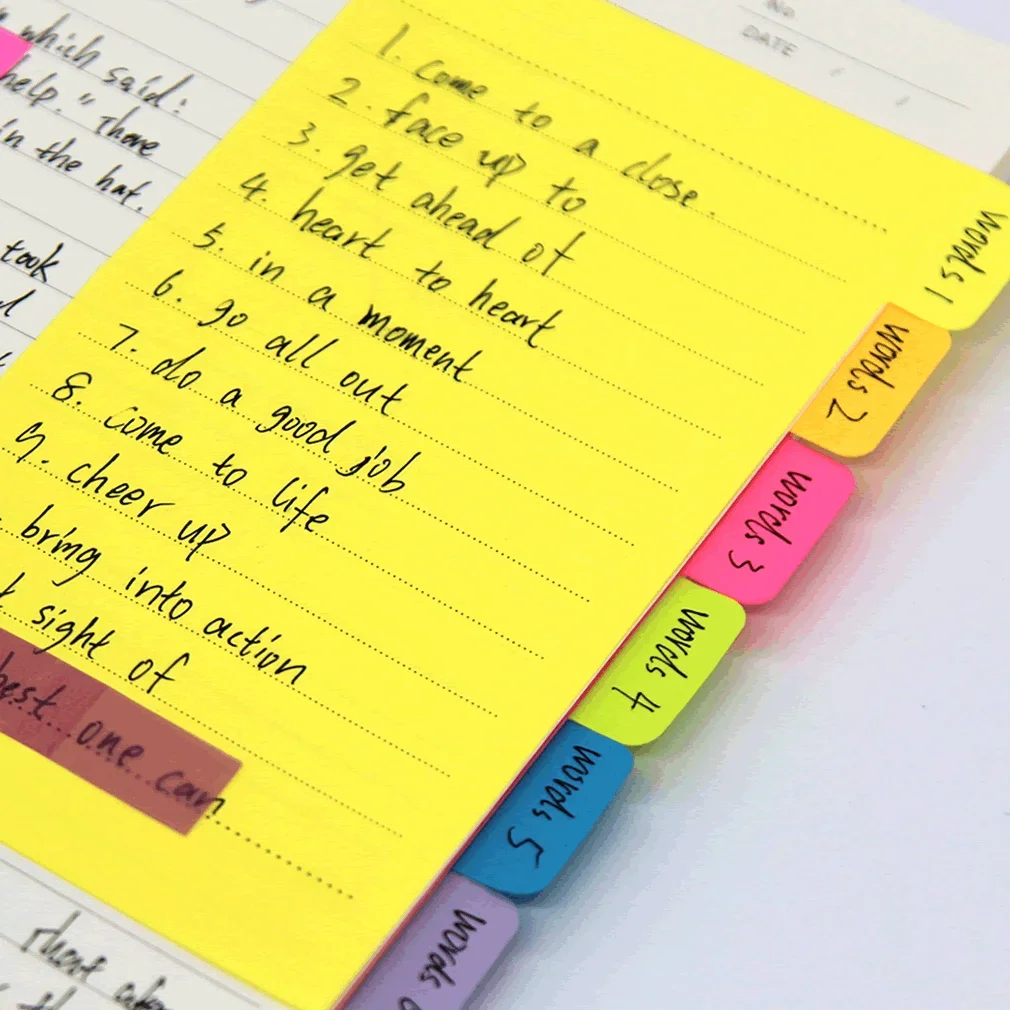 which said:
help." There
in the hat.
took
No
DATE / /
1. Come to a close.
2. face up to
3. get ahead of
4. heart to heart
5. in a moment
6. go all out
7. do a good job
8. come to life
9. cheer up
bring into action
sight of
best one can
words 1
words 2
words 3
words 4
words 5
words